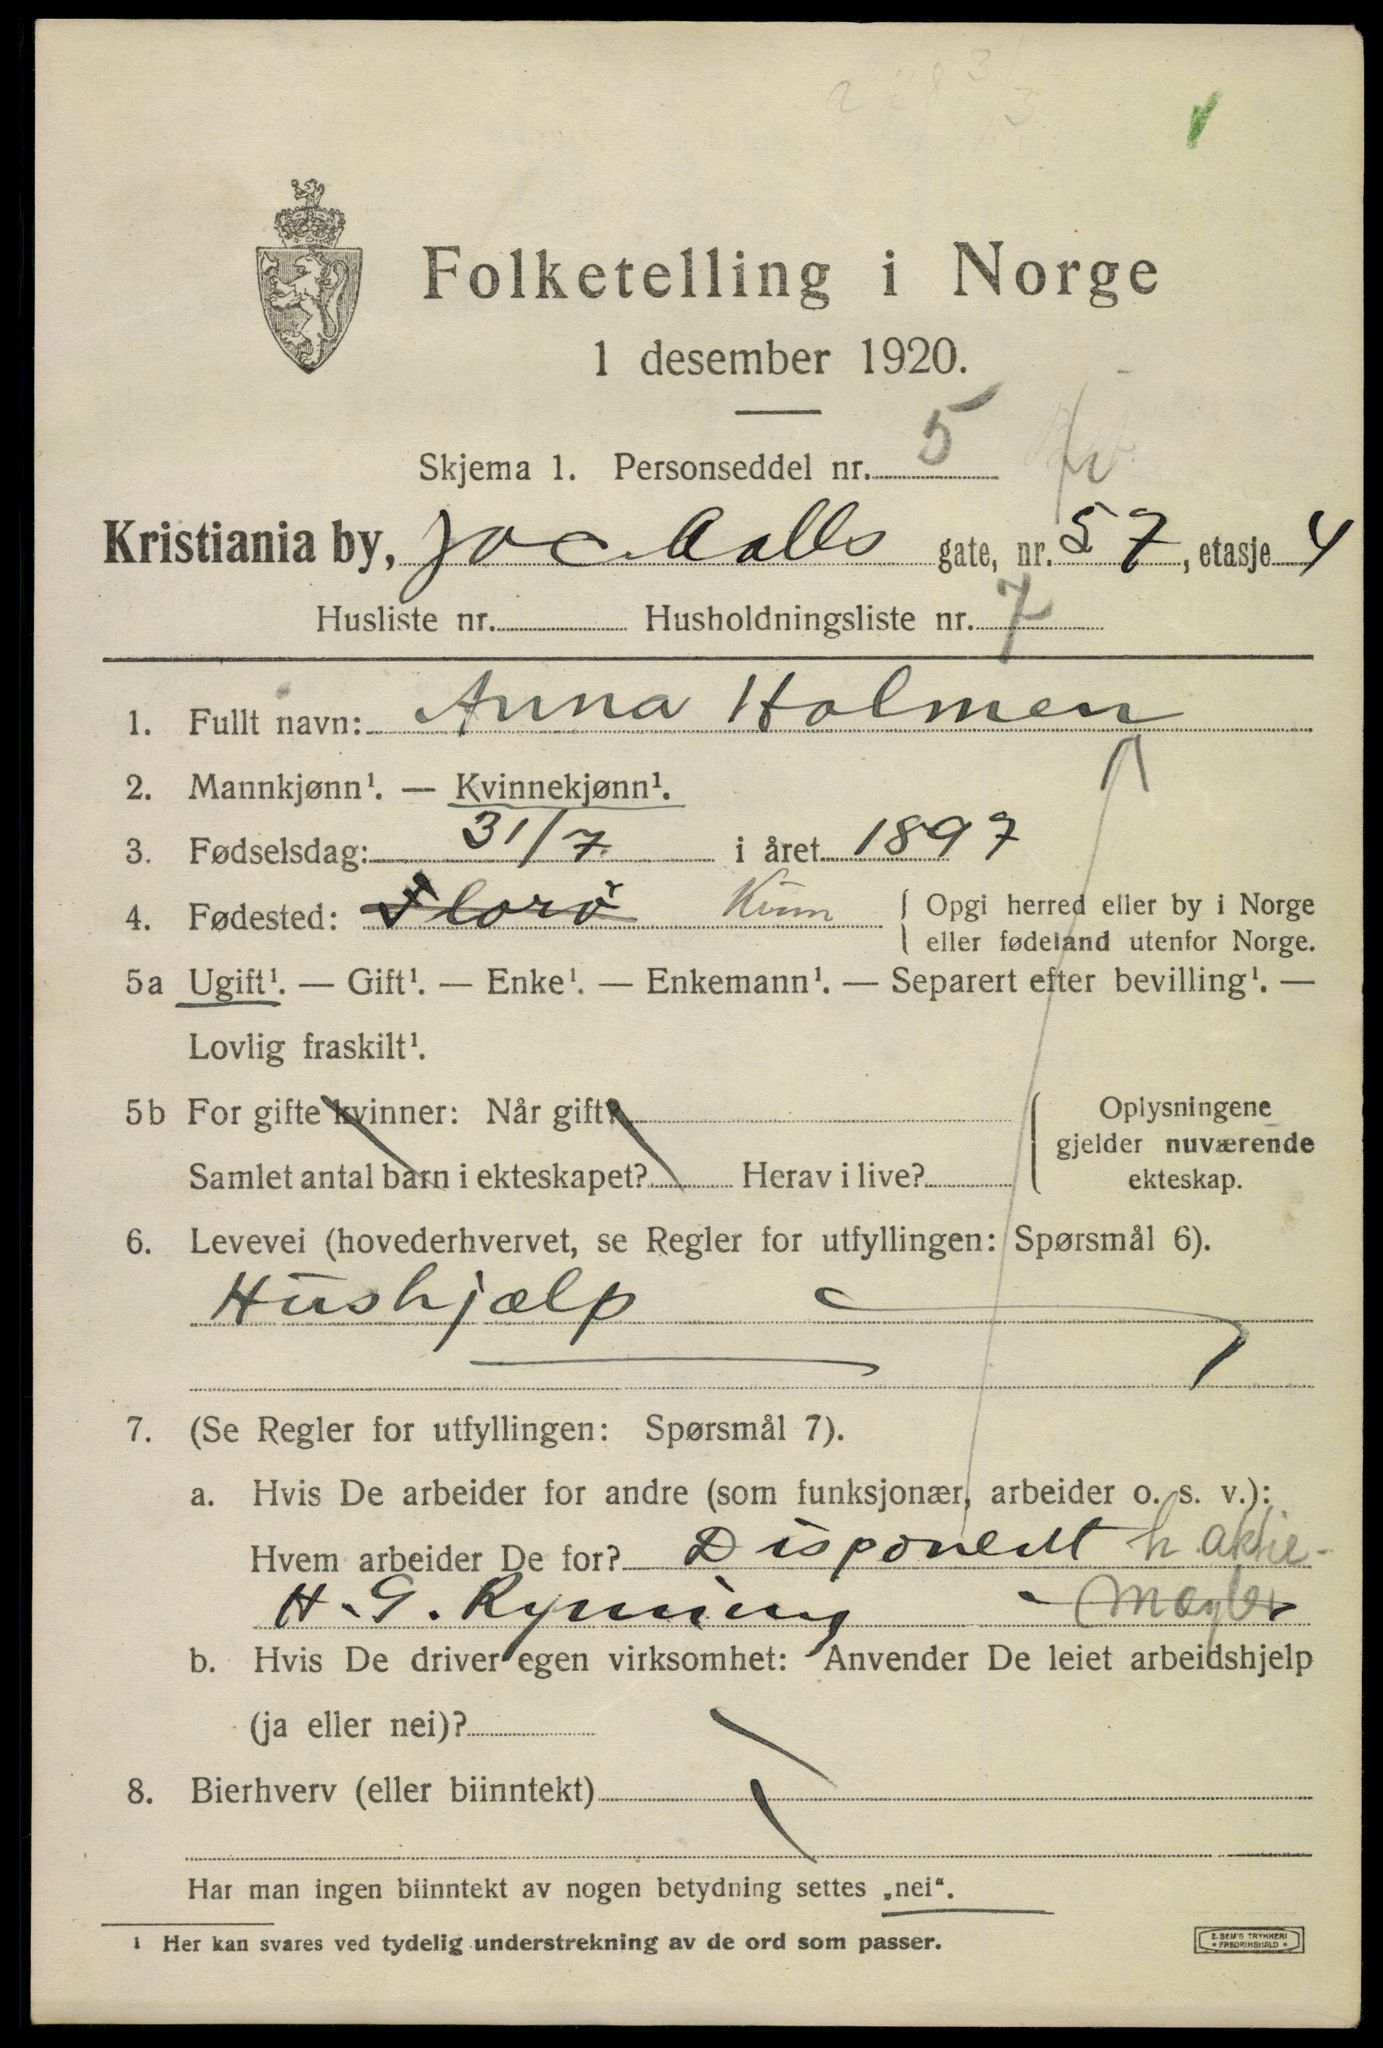 Folketelling i Norge
1 desember 1920.
Skjema 1. Personseddel nr. 5
Kristiania by, Jac. Aalls gate, nr. 57, etasje 4
Husliste nr. Husholdningsliste nr. 7
1. Fullt navn: Anna Holmen
2. Mannkjønn¹. — Kvinnekjønn¹.
3. Fødselsdag: 31/7 i året 1897
4. Fødested: Florø Kinn { Opgi herred eller by i Norge
eller fødeland utenfor Norge.
5a Ugift¹. — Gift¹. — Enke¹. — Enkemann¹. — Separert efter bevilling¹. —
Lovlig fraskilt¹.
5b For gifte kvinner: Når gift?
Samlet antal barn i ekteskapet? Herav i live?
Oplysningene
gjelder nuværende
ekteskap.
6. Levevei (hovederhvervet, se Regler for utfyllingen: Spørsmål 6).
Hushjælp
7. (Se Regler for utfyllingen: Spørsmål 7).
a. Hvis De arbeider for andre (som funksjonær, arbeider o. s. v.):
Hvem arbeider De for? Disponent h aktie-
H. G. Rynning - Mægler
b. Hvis De driver egen virksomhet: Anvender De leiet arbeidshjelp
(ja eller nei)?
8. Bierhverv (eller biinntekt)
Har man ingen biinntekt av nogen betydning settes „nei“.
¹ Her kan svares ved tydelig understrekning av de ord som passer.
E. SEM'S TRYKKERI
• FREDRIKSHALD •